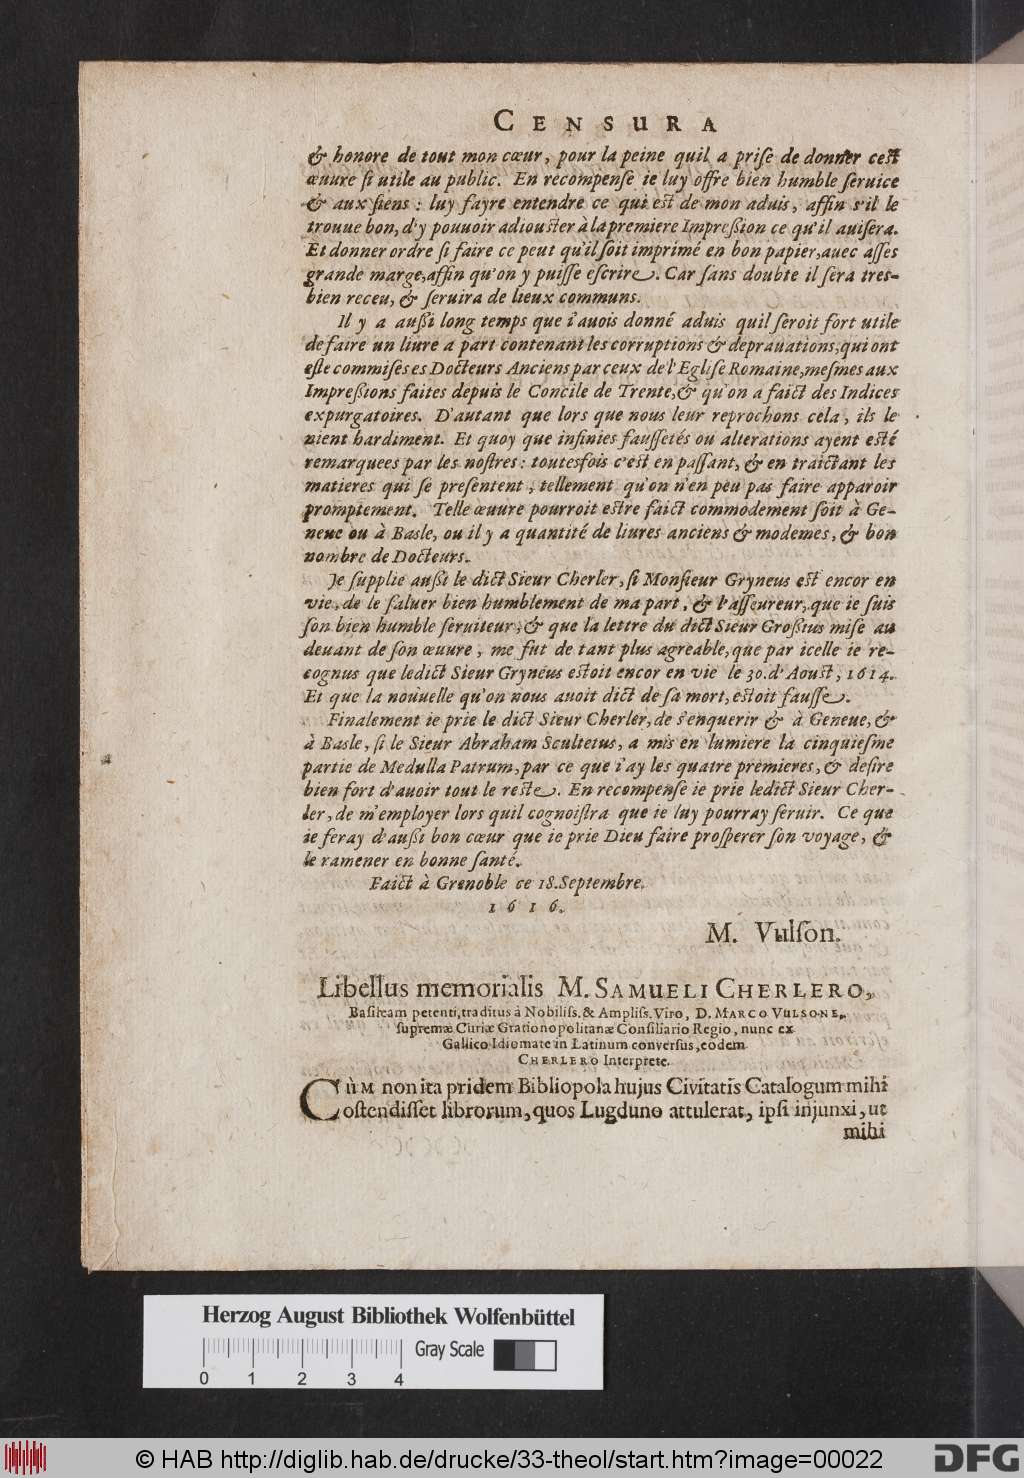 CENSURA
& honore de tout mon cœur, pour la peine quil a priſe de donner ceſt
œuure ſi utile au public. En recompenſe ie luy offre bien humble ſeruice
& aux ſiens : luy fayre entendre ce qui eſt de mon aduis, affin s'il le
trouue bon, d'y pouuoir adiouſter à la premiere Impreßion ce qu'il auiſera.
Et donner ordre ſi faire ce peut qu'il ſoit imprimé en bon papier, auec aſſes
grande marge, affin qu'on y puiſſe eſcrire. Car ſans doubte il ſera tres-
bien receu, & ſeruira de lieux communs.
Il y a außi long temps que i'auois donné aduis quil ſeroit fort utile
de faire un liure a part contenant les corruptions & deprauations, qui ont
eſte commiſes es Docteurs Anciens par ceux de l'Egliſe Romaine, meſmes aux
Impreßions faites depuis le Concile de Trente, & qu'on a faict des Indices
expurgatoires. D'autant que lors que nous leur reprochons cela, ils le
nient hardiment. Et quoy que infinies fauſſetés ou alterations ayent eſté
remarquees par les noſtres : toutesfois c'eſt en paſſant, & en traictant les
matieres qui ſe preſentent, tellement qu'on n'en peu pas faire apparoir
promptement. Telle œuure pourroit eſtre faict commodement ſoit à Ge-
neue ou à Basle, ou il y a quantité de liures anciens & modernes, & bon
nombre de Docteurs.
Je ſupplie außi le dict Sieur Cherler, ſi Monſieur Gryneus eſt encor en
vie, de le ſaluer bien humblement de ma part, & l'aſſeureur, que ie ſuis
ſon bien humble ſeruiteur, & que la lettre du dict Sieur Großtus miſe au
deuant de ſon œuure, me fut de tant plus agreable, que par icelle ie re-
cognus que ledict Sieur Gryneus eſtoit encor en vie le 30. d'Aouſt, 1614.
Et que la nouuelle qu'on nous auoit dict de ſa mort, eſtoit fauſſe.
Finalement ie prie le dict Sieur Cherler, de s'enquerir & à Geneue, &
à Basle, ſi le Sieur Abraham Scultetus, a mis en lumiere la cinquieſme
partie de Medulla Patrum, par ce que i'ay les quatre premieres, & deſire
bien fort d'auoir tout le reſte. En recompenſe ie prie ledict Sieur Cher-
ler, de m'employer lors quil cognoiſtra que ie luy pourray ſeruir. Ce que
ie feray d'außi bon cœur que ie prie Dieu faire proſperer ſon voyage, &
le ramener en bonne ſanté.
Faict à Grenoble ce 18. Septembre.
1616.
M. Vulſon.
Libellus memorialis M. SAMUELI CHERLERO,
Baſileam petenti, traditus à Nobiliſſ. & Ampliſſ. Viro, D. MARCO VULSONE,
ſupremæ Curiæ Gratianopolitanæ Conſiliario Regio, nunc ex
Gallico Idiomate in Latinum converſus, eodem
CHERLERO Interprete.
CÙM non ita pridem Bibliopola hujus Civitatis Catalogum mihi
oſtendiſſet librorum, quos Lugduno attulerat, ipſi injunxi, ut
mihi
Herzog August Bibliothek Wolfenbüttel
0 1 2 3 4 Gray Scale
© HAB http://diglib.hab.de/drucke/33-theol/start.htm?image=00022
DFG